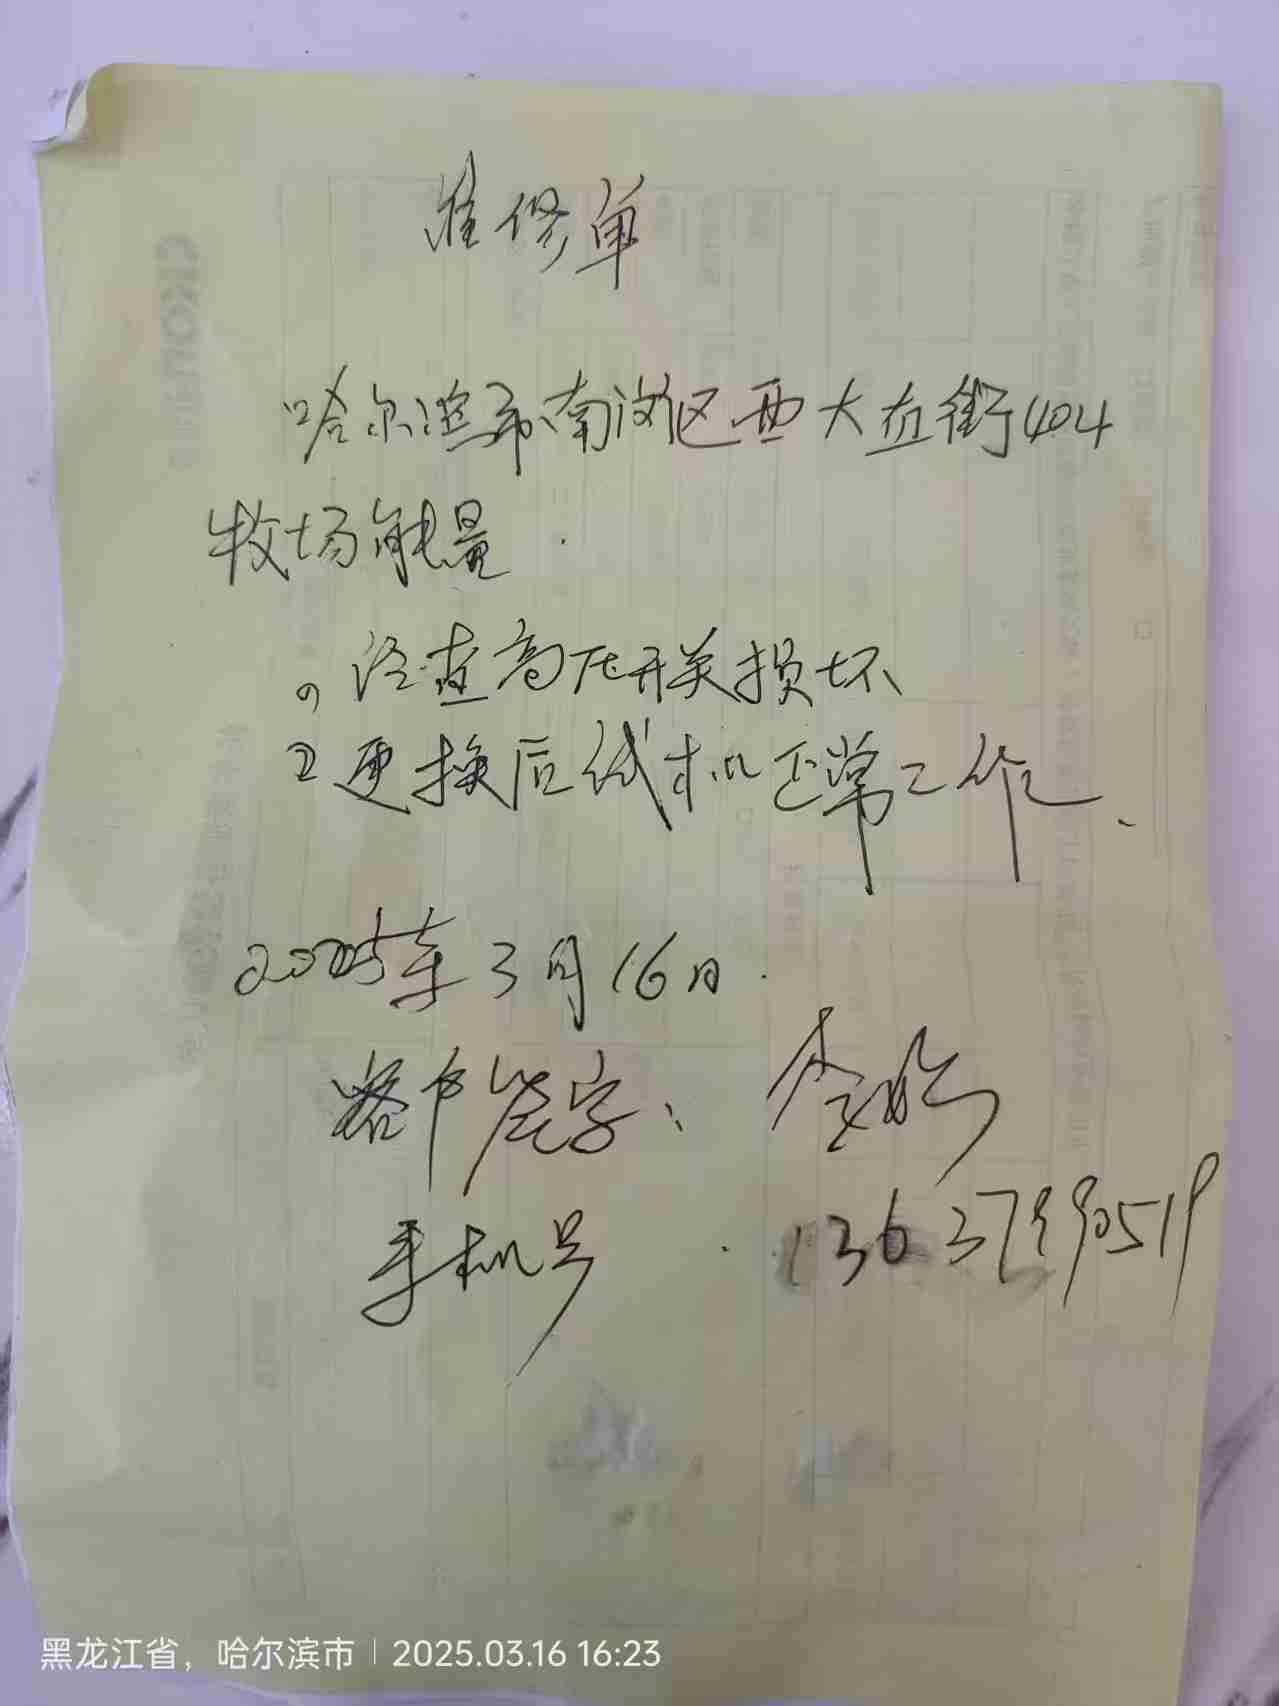 维修单
哈尔滨市南岗区西大直街404
牧场能量.
1, 检查高压开关损坏
2 更换后试机正常工作.
2025年3月16日.
客户签字:
手机号 13637990519
黑龙江省，哈尔滨市 | 2025.03.16 16:23